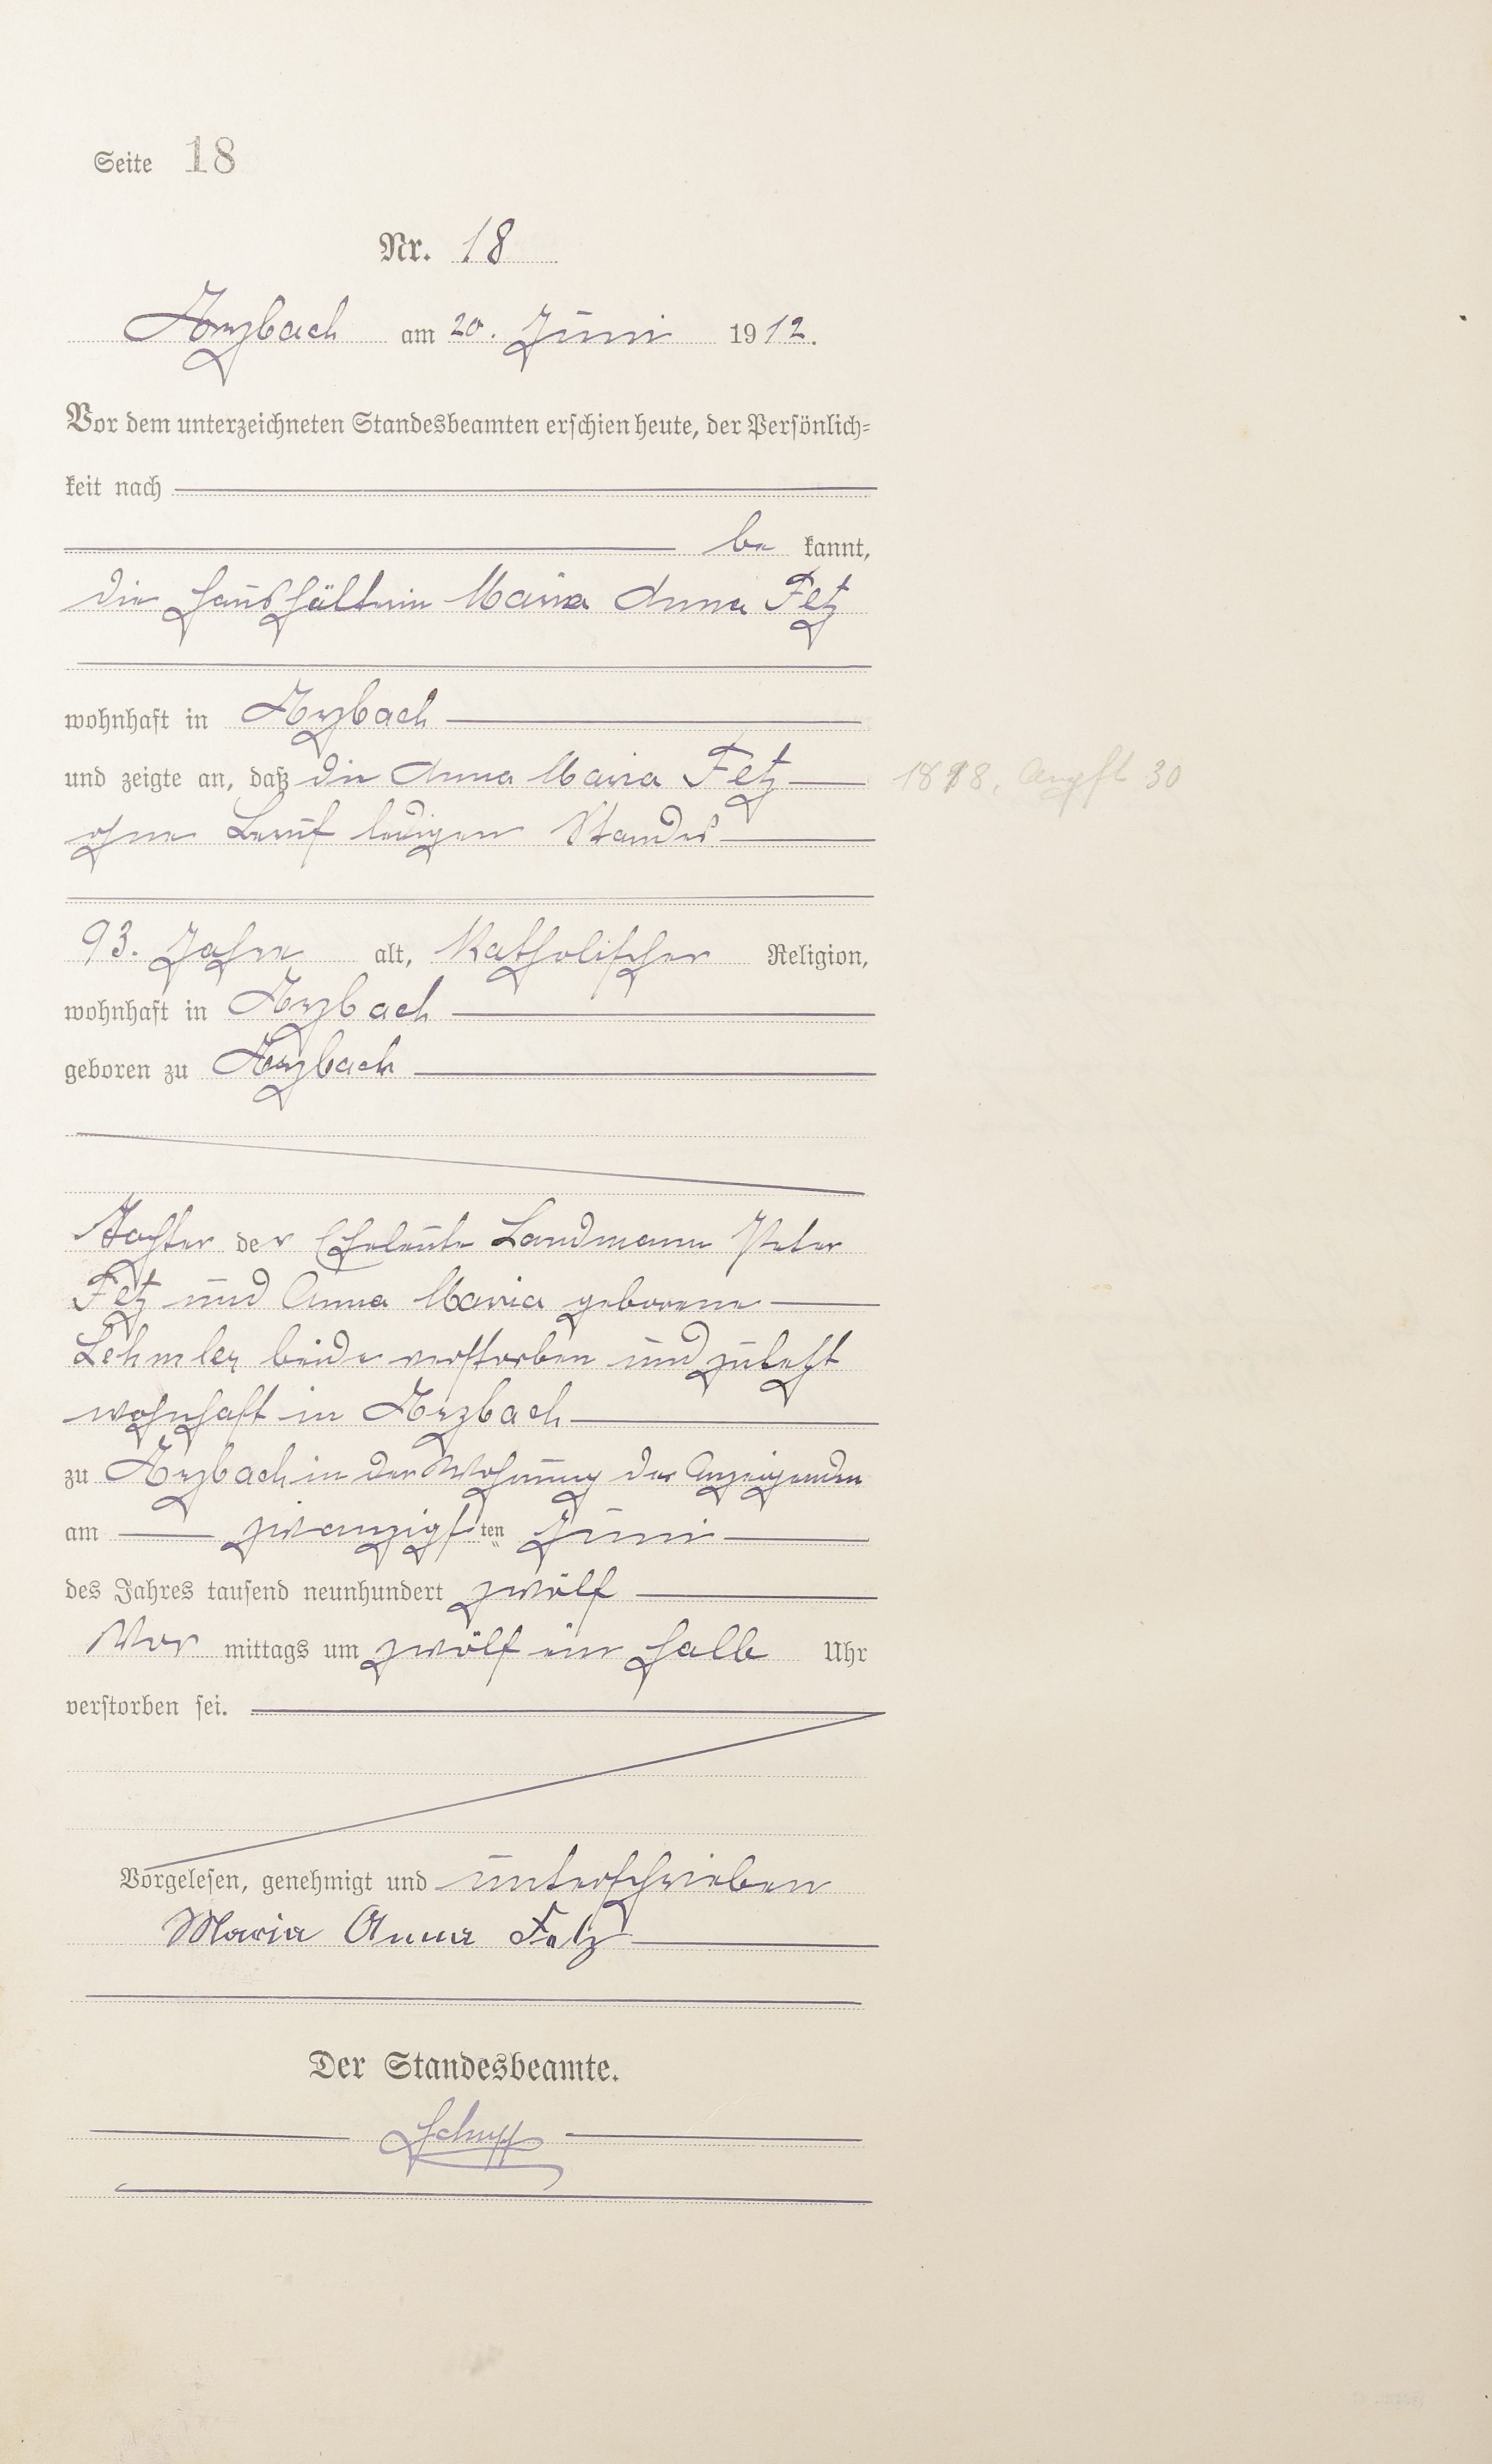 Seite 18
Nr. 18
Arzbach am 20. Juni 1912.
Vor dem unterzeichneten Standesbeamten erschien heute, der Persönlich-
keit nach
be kannt,
die Haushälterin Maria Anna Fetz
wohnhaft in Arzbach
und zeigte an, daß die Anna Maria Fetz
1818, August 30
ohne Beruf ledigen Standes
93. Jahre alt, Katholischer Religion,
wohnhaft in Arzbach
geboren zu Arzbach
Tochter der Eheleute Landmann Peter
Fetz und Anna Maria geborene
Lehmler beide verstorben und zuletzt
wohnhaft in Arzbach
zu Arzbach in der Wohnung der Anzeigenden
am zwanzigsten Juni
des Jahres tausend neunhundert zwölf
Vor mittags um zwölf ein halb Uhr
verstorben sei.
Vorgelesen, genehmigt und unterschrieben
Maria Anna Fetz
Der Standesbeamte.